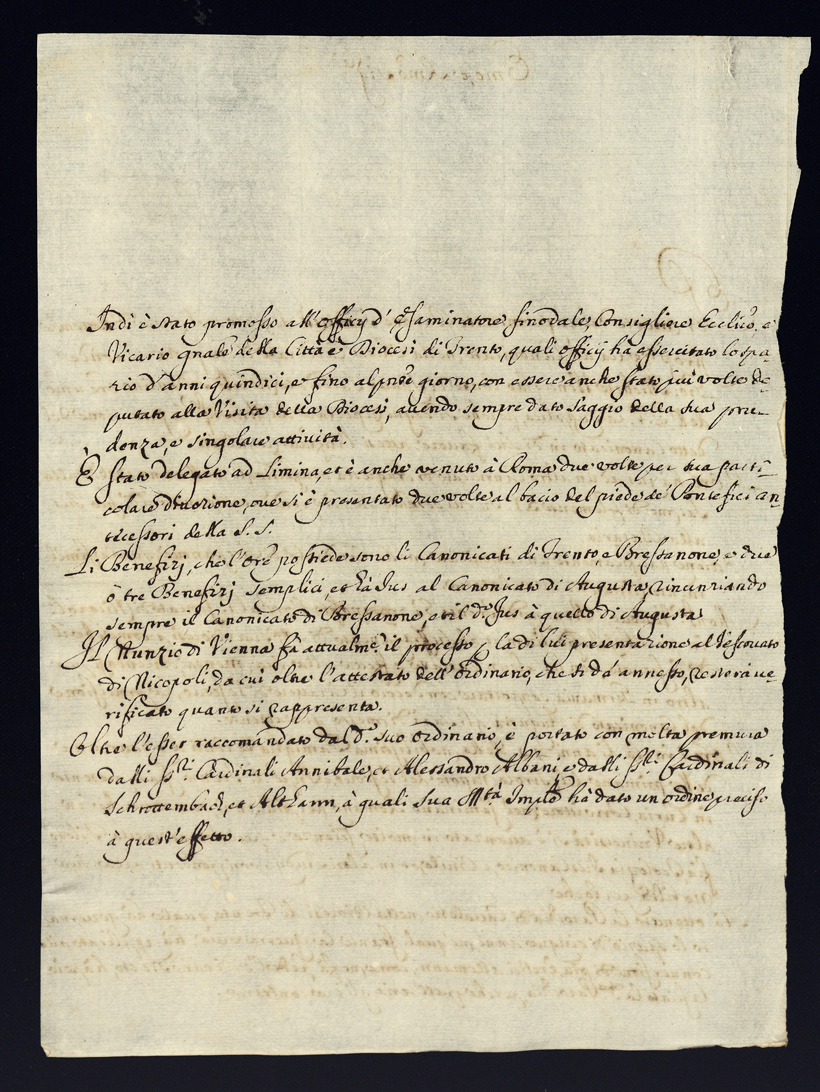 Indi è stato promosso all'officij d'Esaminatore sinodale, Consigliere Ecclico, e
Vicario gnale della Città e Diocesi di Trento, quali officij ha essercitato lo spa-
tio d'anni quindici, e sino al pnte giorno, con essere anche stato più volte de-
putato alla Visita della Diocesi, avendo sempre dato saggio della sua pru-
denza, e singolare attività.
È stato delegato ad Limina, et è anche venuto à Roma due volte per sua parti-
colare divozione, ove si è presentato due volte al bacio del piede de' Pontefici an-
tecessori della S. S.
Li Benefizj, che l'Ore possiede sono li Canonicati di Trento, e Bressanone, e due
ò tre Benefizj semplici, et hà Jus al Canonicato di Augusta, rinunziando
sempre il Canonicato di Bressanone, et il do Jus à quello di Augusta
Il Nunzio di Vienna fà attualme il processo la di lui presentazione al Vescovato
di Nicopoli, da cui oltre l'attestato dell'Ordinario, che si dà annesso, resterà ve-
rificato quanto si rappresenta.
Oltre l'esser raccomandato dal do suo Ordinario, è portato con molta premura
dalli SSri Cardinali Annibale, et Alessandro Albani, e dalli SSri Cardinali di
Schrottembach, et Althann, à quali Sua Mtà Imple hà dato un ordine preciso
à quest'effetto.